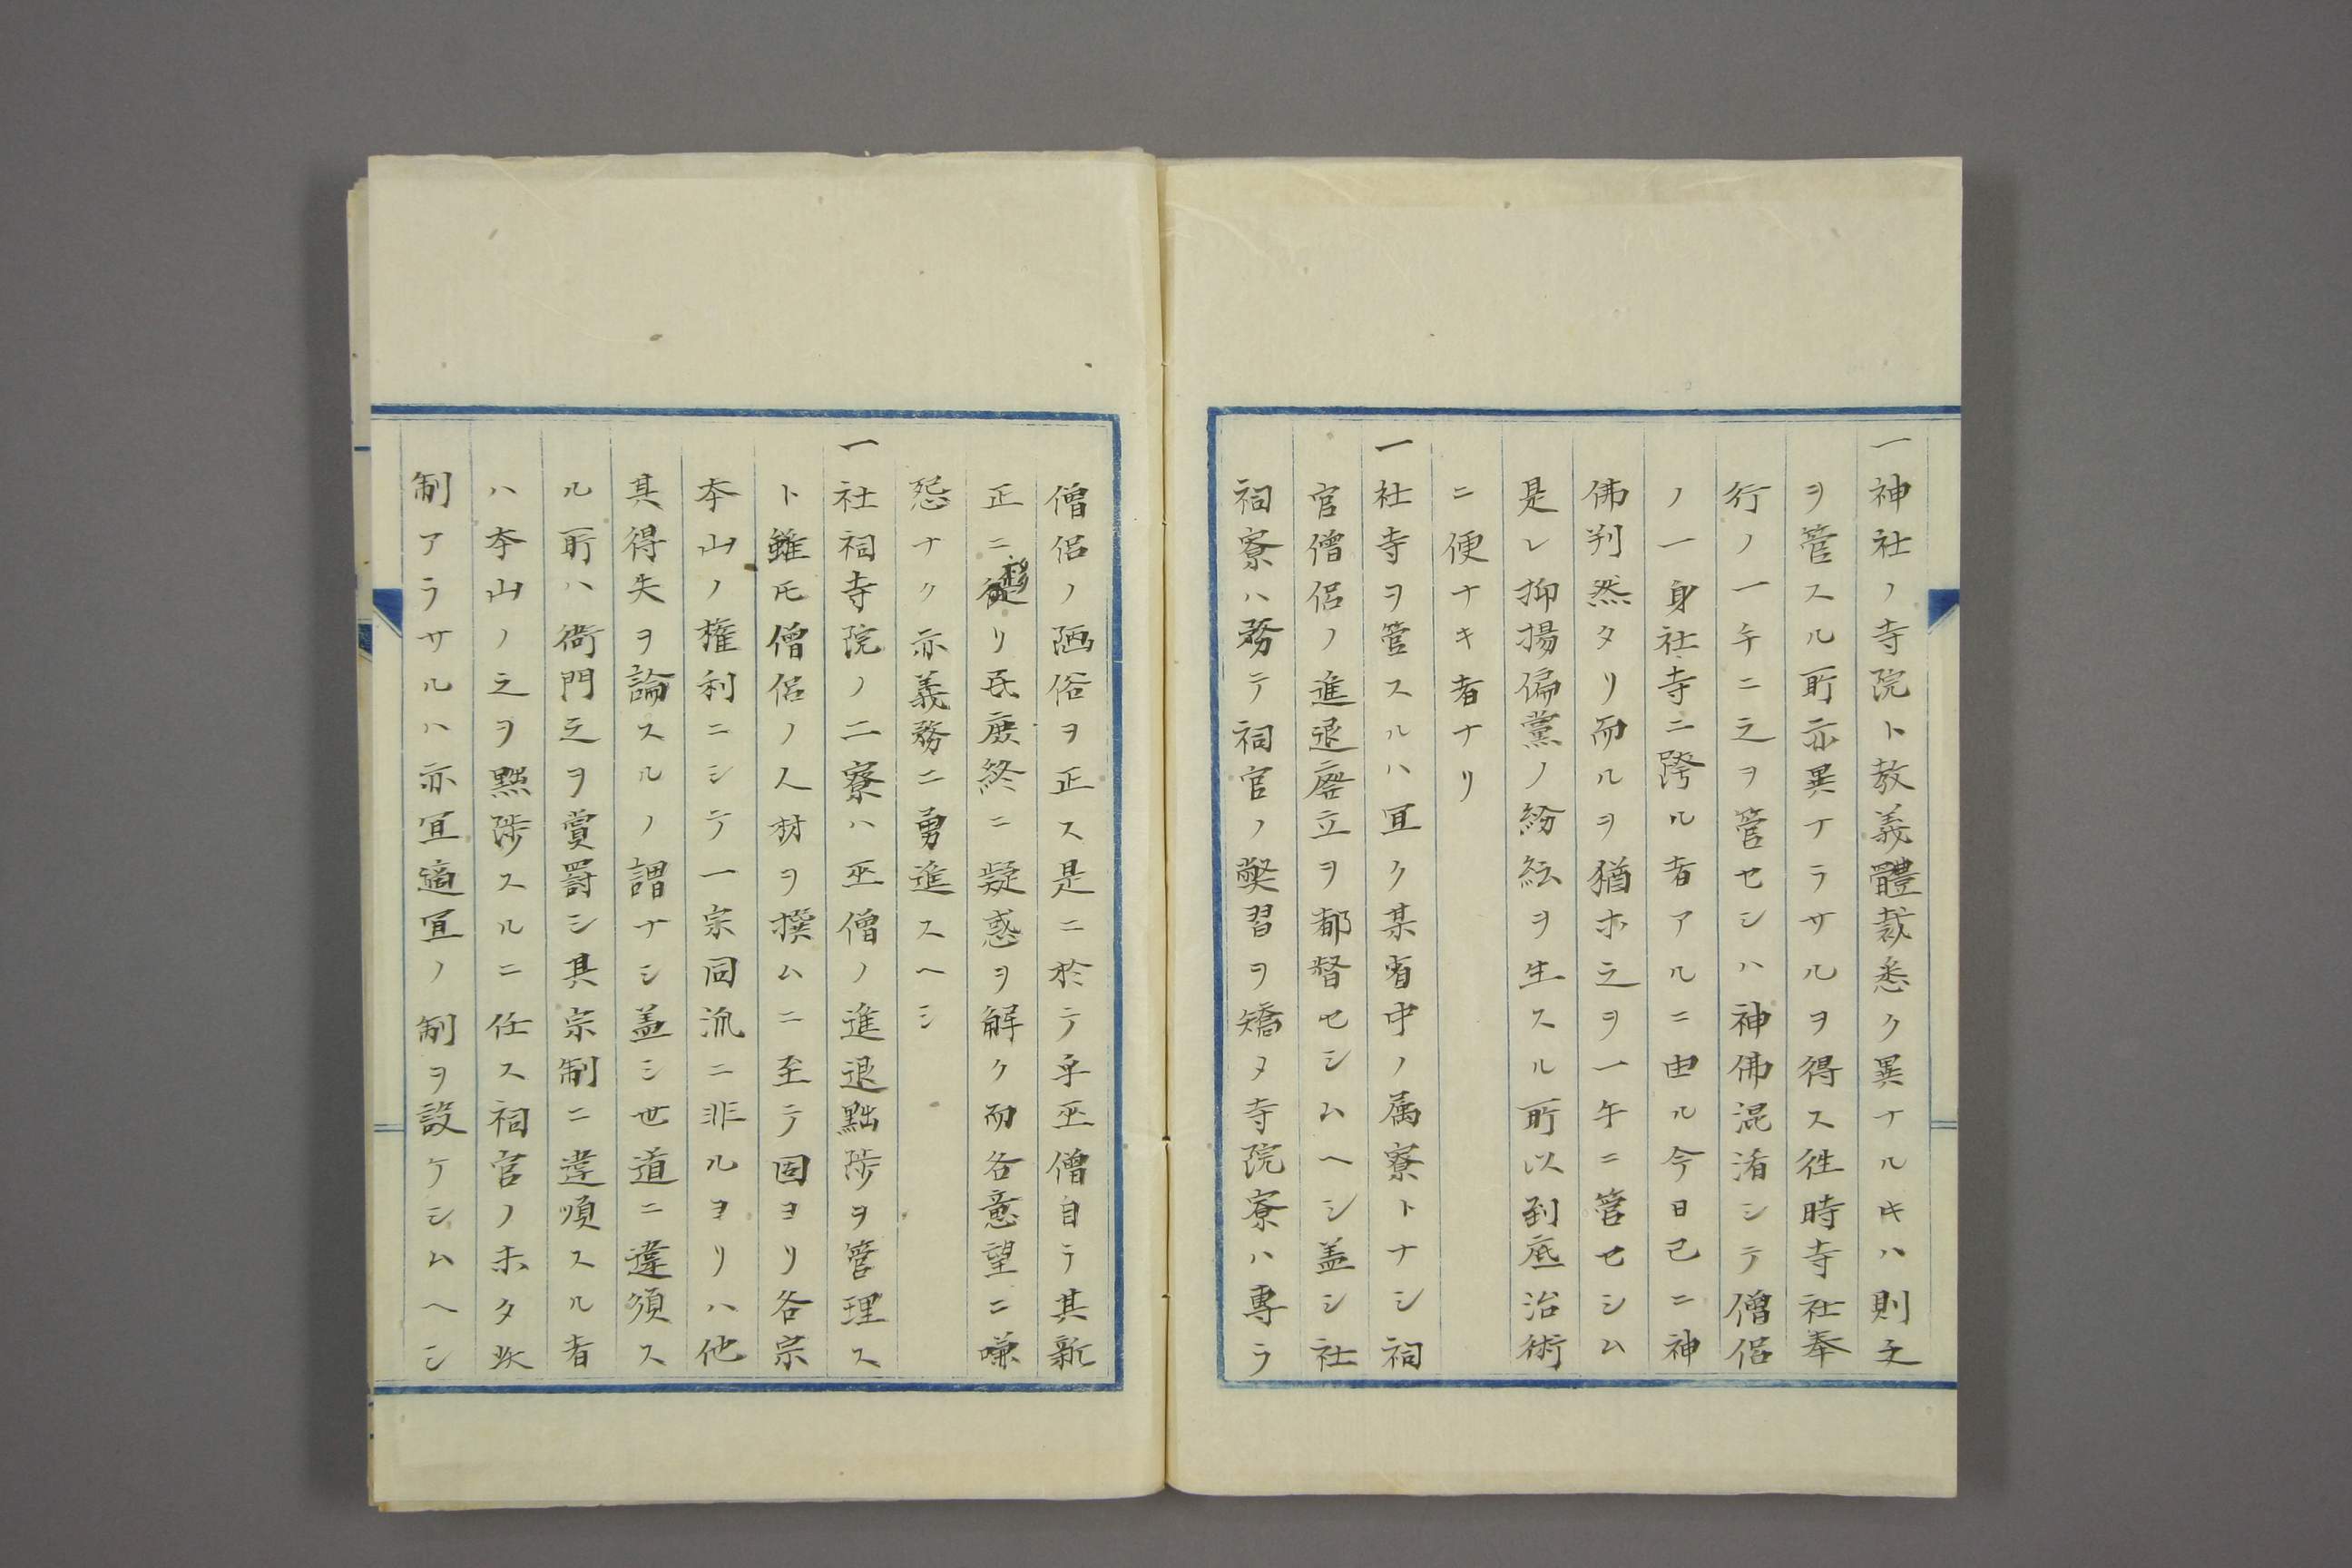 一神社ノ寺院ト教義體裁悉ク異ナルキハ則之
ヲ管スル所亦異ナラサルヲ得ス徃時寺社奉
行ノ一手ニ之ヲ管セシハ神佛混淆シテ僧侶
ノ一身社寺ニ跨ル者アルニ由ル今日已ニ神
佛判然タリ而ルヲ猶ホ之ヲ一手ニ管セシム
是レ抑揚偏黨ノ紛紜ヲ生スル所以到底治術
ニ便ナキ者ナリ
一社寺ヲ管スルハ宜ク某省中ノ属寮トナシ祠
官僧侶ノ進退廢立ヲ都督セシムヘシ盖シ社
祠寮ハ務テ祠官ノ獘習ヲ矯メ寺院寮ハ專ラ
僧侶ノ陋俗ヲ正ス是ニ於テ乎巫僧自ラ其新
正ニ移リ民庶終ニ疑惑ヲ解ク而各意望ニ嗛
怨ナク亦義務ニ勇進スヘシ
一社祠寺院ノ二寮ハ巫僧ノ進退黜陟ヲ管理ス
ト雖𪜈僧侶ノ人材ヲ撰ムニ至テ固ヨリ各宗
本山ノ権利ニシテ一宗同流ニ非ルヨリハ他
其得失ヲ論スルノ謂ナシ盖シ世道ニ違須ス
ル所ハ衙門之ヲ賞罸シ其宗制ニ違順スル者
ハ本山ノ之ヲ黜陟スルニ任ス祠官ノ未タ此
制アラサルハ亦宜適宜ノ制ヲ設ケシムヘシ